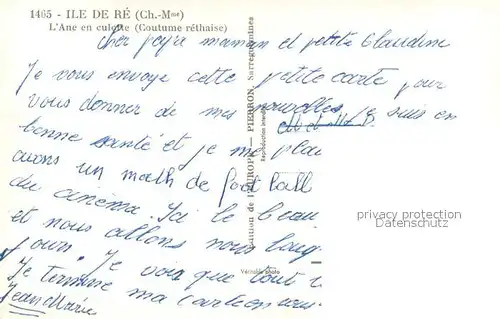 1465 - ILE DE RÉ (Ch.-Mme)
L'Ane en culotte (Coutume réthaise)
Cher papa maman et petite Claudine
Je vous envoye cette petite carte pour
vous donner de mes nouvelles. Je suis en
bonne santé et je me plai
avons un math de foot ball
du cinéma. Ici le beau
et nous allons nous baig
jours. Je vois que tout
Je termine ma carte en vous
Jean Marie
EUROPE — PIERRON, Sarreguemines
Reproduction interdite
Véritable photo
privacy protection
Datenschutz